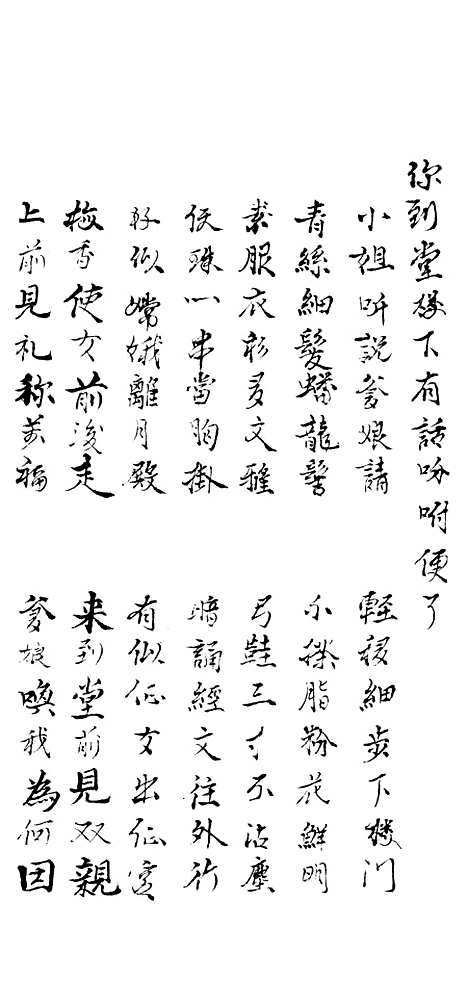 你到堂楼下有話吩咐便了
小姐听說爹娘請 輕移細步下楼门
青絲細髮蟠龍髻 不搽脂粉花鮮明
素服衣衫多文雅 弓鞋三寸不沾塵
仸珠一串當胸掛 暗誦經文往外行
好似嫦娥離月殿 有似仙女出仙宮
梅香使女前後走 来到堂前見双親
上前見礼称萬福 爹娘喚我為何因